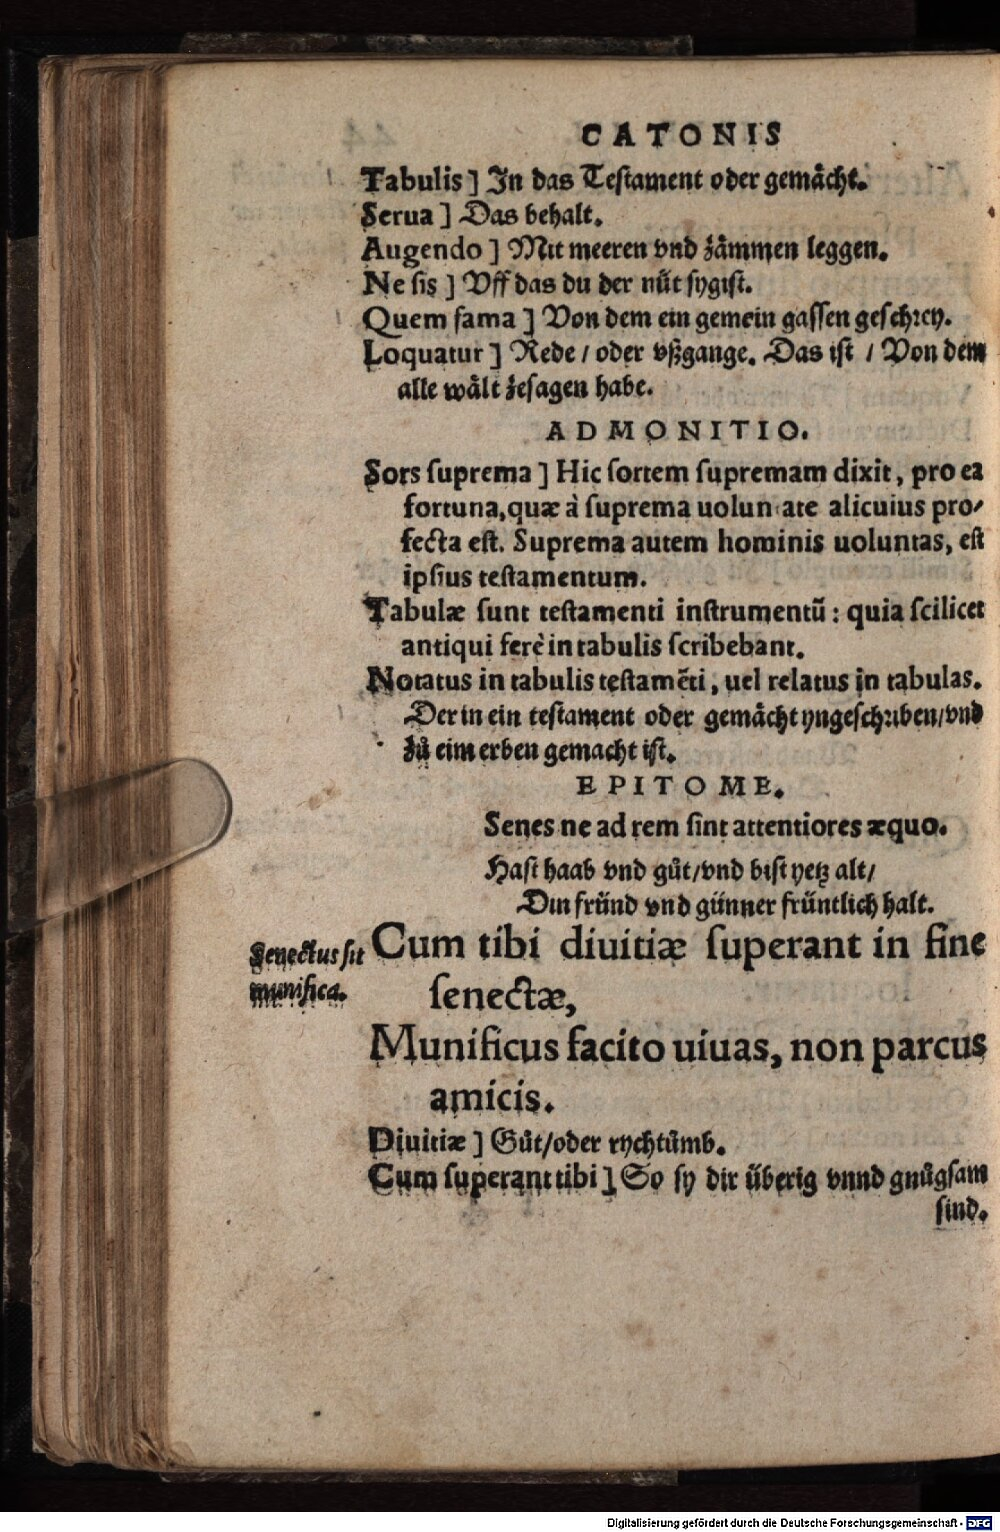 CATONIS
Tabulis] In das Testament oder gemaͤcht.
Serua] Das behalt.
Augendo] Mit meeren vnd zaͤmmen leggen.
Ne ſis] Vff das du der nüt ſygiſt.
Quem fama] Von dem ein gemein gaſſen geſchrey.
Loquatur] Rede / oder vßgange. Das iſt / Von dem
alle waͤlt zeſagen habe.
ADMONITIO.
Sors ſuprema] Hic ſortem ſupremam dixit, pro ea
fortuna, quæ à ſuprema uolun ate alicuius pro⸗
fecta eſt. Suprema autem hominis uoluntas, eſt
ipſius teſtamentum.
Tabulæ ſunt teſtamenti inſtrumentũ: quia ſcilicet
antiqui ferè in tabulis ſcribebant.
Notatus in tabulis teſtamẽti, uel relatus in tabulas.
Der in ein teſtament oder gemaͤcht yngeſchriben/vnd
zů eim erben gemacht iſt.
EPITOME.
Senes ne ad rem ſint attentiores æquo.
Haſt haab vnd gůt/vnd biſt yetz alt/
Din fründ vnd günner früntlich halt.
Senectus ſit
munifica.
Cum tibi diuitiæ ſuperant in fine
ſenectæ,
Munificus facito uiuas, non parcus
amicis.
Diuitiæ] Gůt/oder rychtůmb.
Cum ſuperant tibi] So ſy dir überig vnnd gnůgſam
ſind.
Digitalisierung gefördert durch die Deutsche Forschungsgemeinschaft - DFG